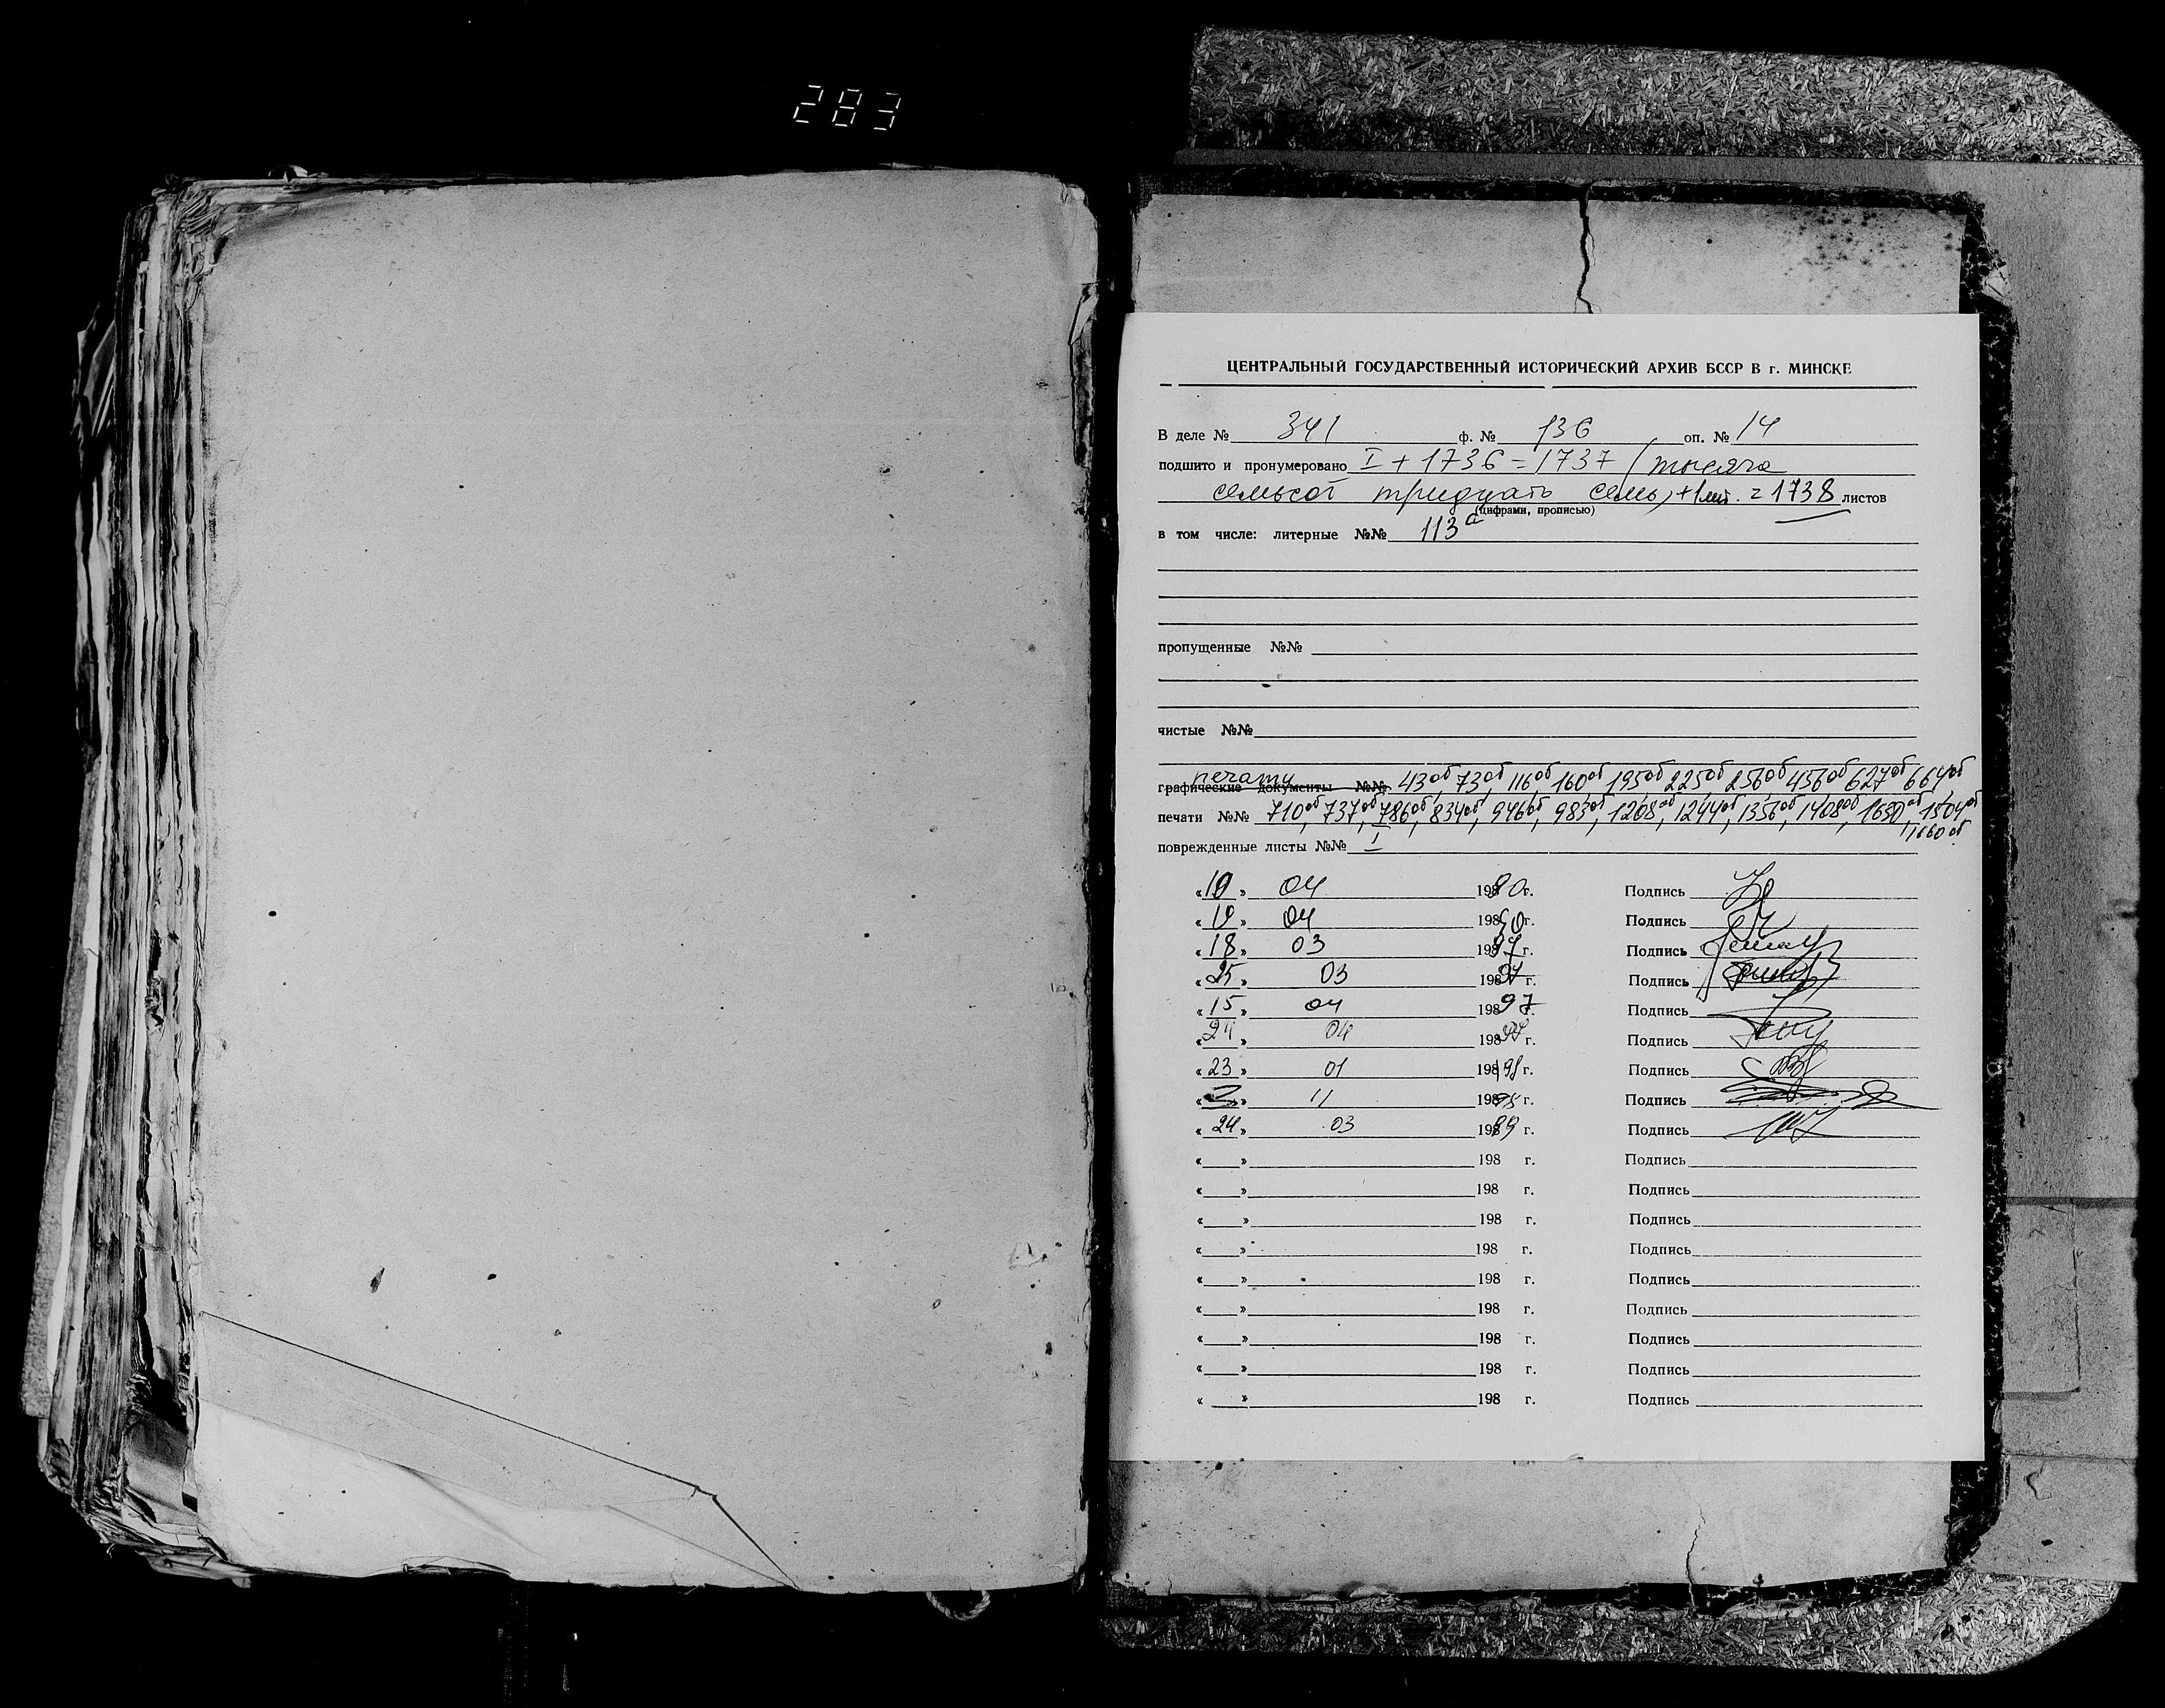 283
ЦЕНТРАЛЬНЫЙ ГОСУДАРСТВЕННЫЙ ИСТОРИЧЕСКИЙ АРХИВ БССР В г. МИНСКЕ
В деле № 341 ф. № 136 оп. № 14
подшито и пронумеровано I + 1736 = 1737 (тысяча
семьсот тридцать семь) +1лит. = 1738 листов
(цифрами, прописью)
в том числе: литерные №№ 113а
пропущенные №№
чистые №№
печати
графические документы №№ 43об, 73об, 116об, 160об, 195об, 225об, 256об, 456об, 627об, 664об
печати №№ 710об, 737об, 786об, 834об, 946об, 983об, 1208об, 1244об, 1356об, 1408об, 1504об
1660об
поврежденные листы №№ I
«10» 04 1990г. Подпись
«10» 04 198 90г. Подпись
«18» 03 198 97г. Подпись
«25» 03 198 97г. Подпись
«15» 04 198 97г. Подпись
«24» 04 198 97г. Подпись
«23» 01 198 98г. Подпись
«3» 11 198 г. Подпись
«24» 03 198 99 г. Подпись
«    » 198    г. Подпись
«    » 198    г. Подпись
«    » 198    г. Подпись
«    » 198    г. Подпись
«    » 198    г. Подпись
«    » 198    г. Подпись
«    » 198    г. Подпись
«    » 198    г. Подпись
«    » 198    г. Подпись